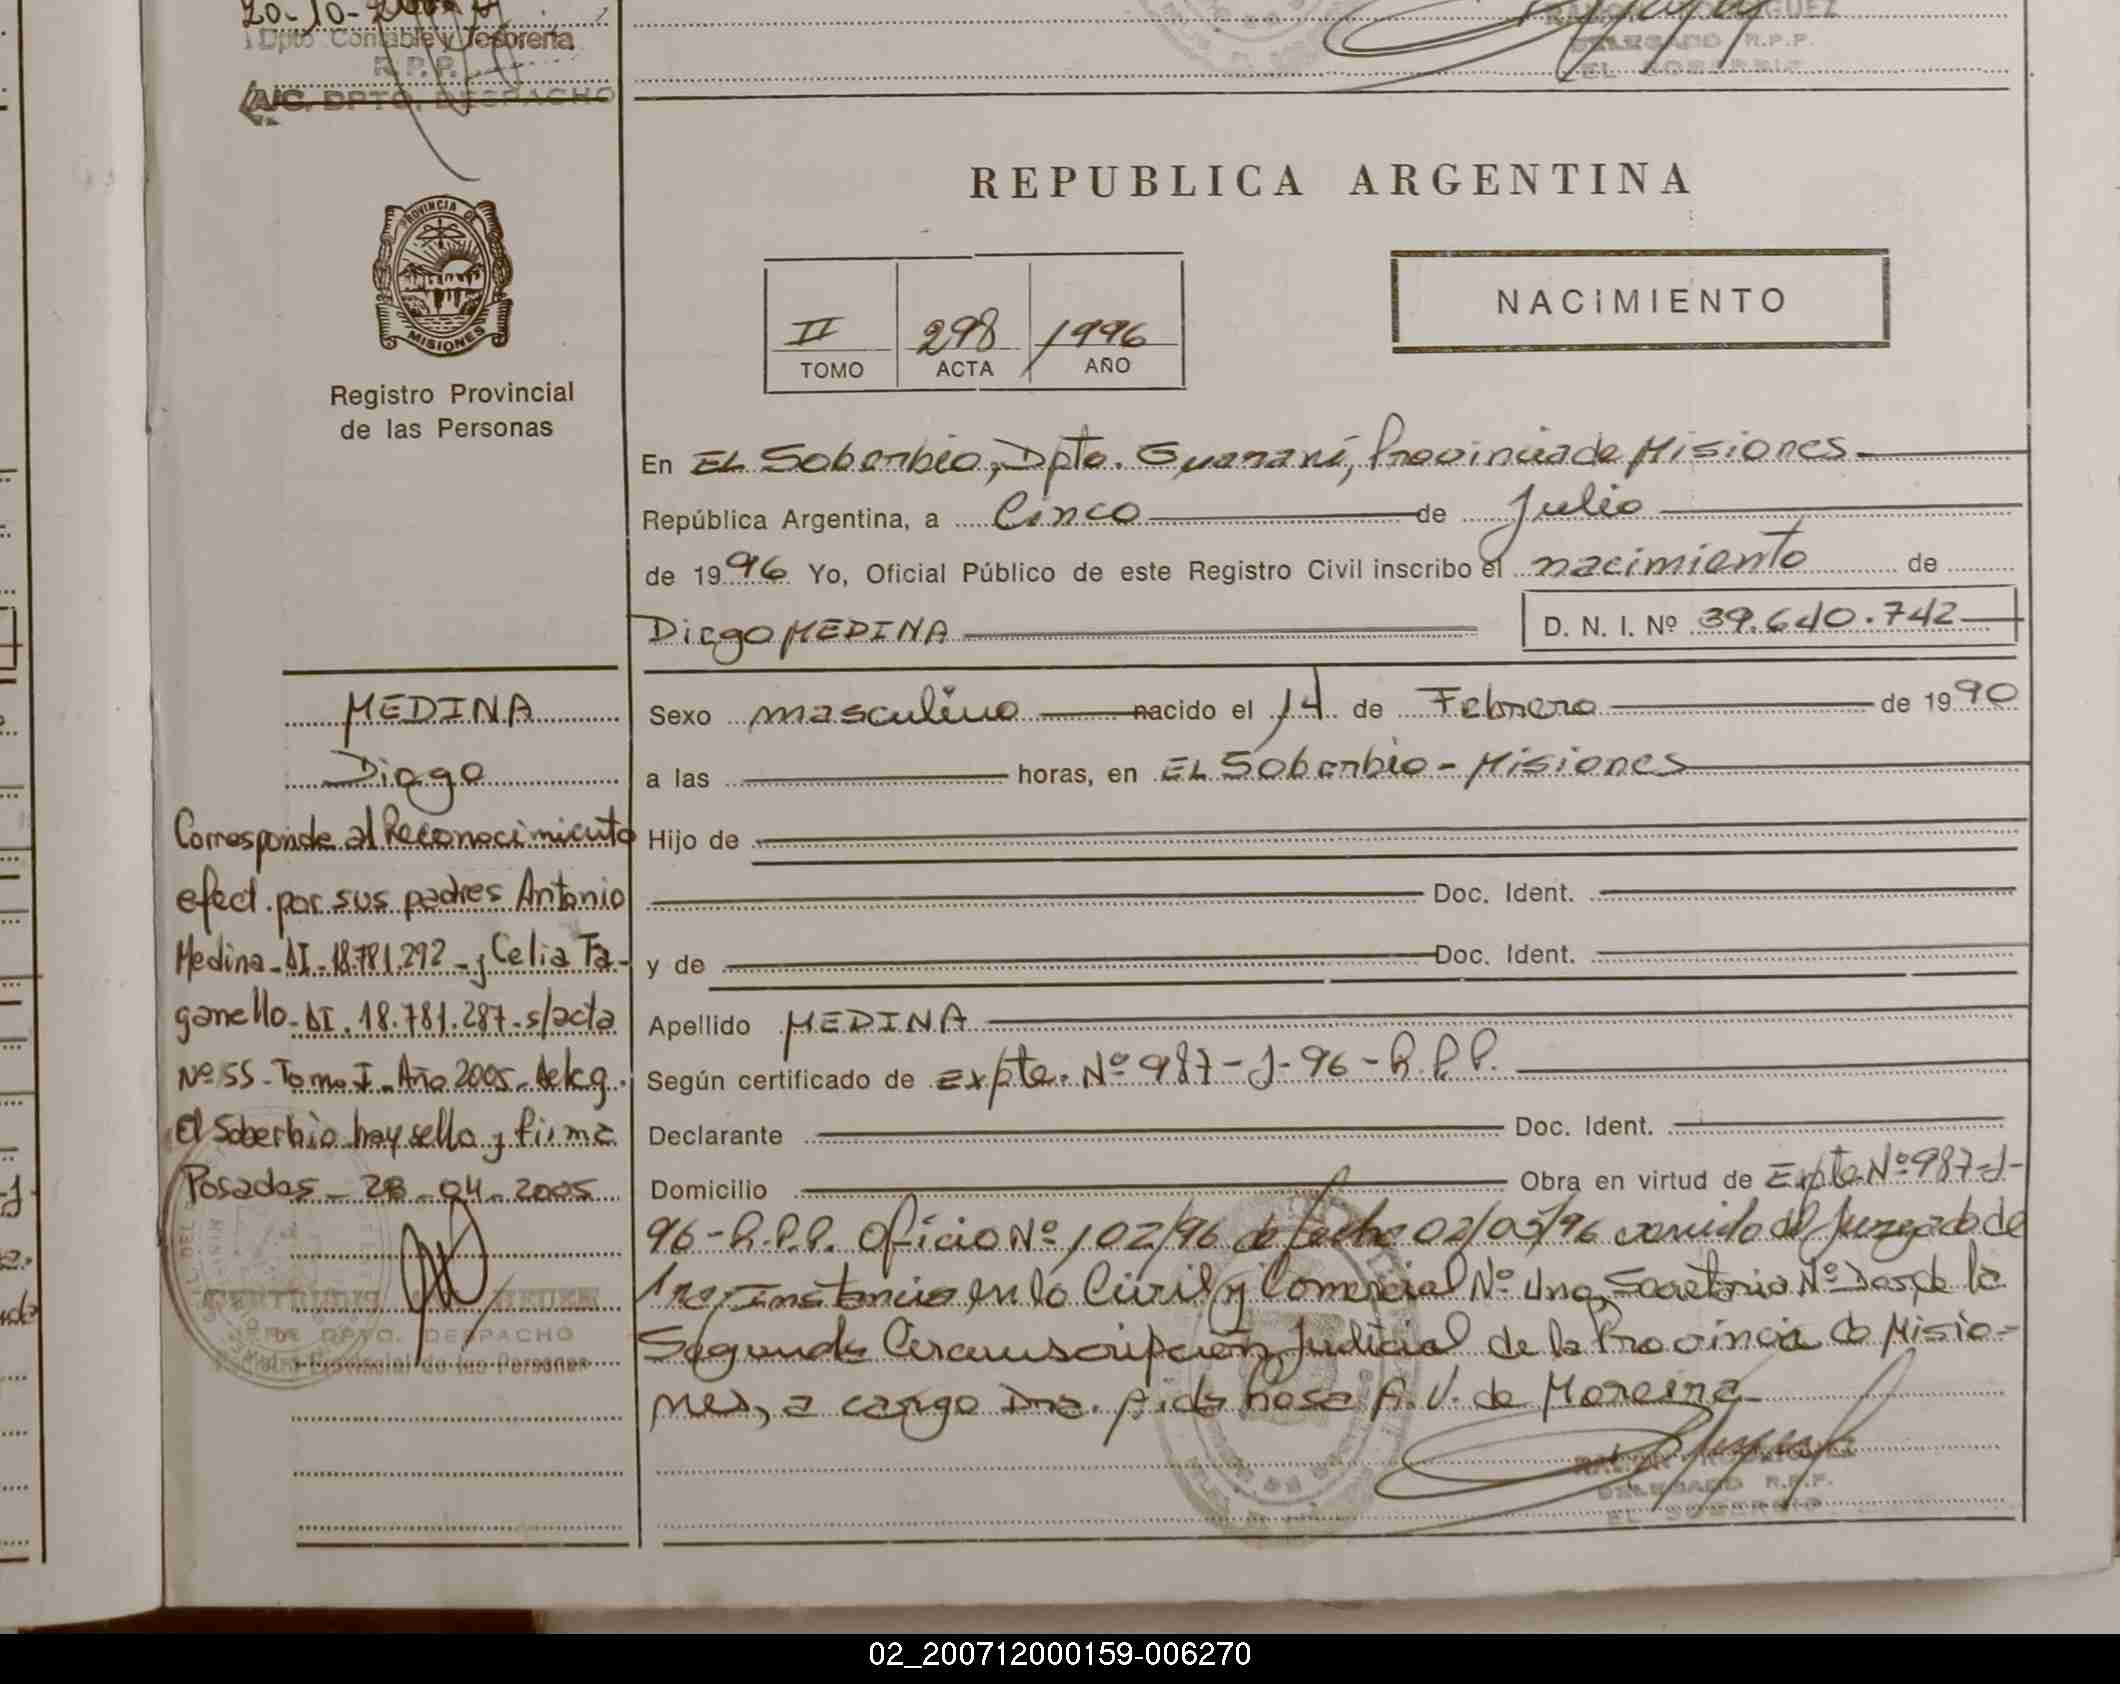 20-10-200
Dpto Contable y Tesorería
R.P.P.
A/C. DPTO. DESPACHO
DELEGADO R.P.P.
EL SOBERBIO
PROVINCIA DE
MISIONES
Registro Provincial
de las Personas
REPUBLICA ARGENTINA
II 298 1996
TOMO ACTA AÑO
NACIMIENTO
En EL Soberbio, Dpto. Guaraní, Provincia de Misiones
República Argentina, a Cinco de Julio
de 1996 Yo, Oficial Público de este Registro Civil inscribo el nacimiento de
Diego MEDINA D. N. I. Nº 39.640.742
Sexo masculino nacido el 14 de Febrero de 1990
a las horas, en EL Soberbio - Misiones
Hijo de
Doc. Ident.
y de Doc. Ident.
Apellido MEDINA
Según certificado de Expte. Nº 987-J-96-R.P.P.
Declarante Doc. Ident.
Domicilio Obra en virtud de Expte Nº 987-J-
96-R.P.P. Oficio Nº 102/96 de fecha 02/05/96 venido del Juzgado de
1ra. Instancia en lo Civil y Comercial Nº Uno, Secretaria Nº Dos, de la
Segunda Circunscripción Judicial de la Provincia de Misio-
nes, a cargo Dra. Aida Rosa A. V. de Moreira
RAMON RODRIGUEZ
DELEGADO R.P.P.
EL SOBERBIO
MEDINA
Diego
Corresponde al Reconocimiento
efect. por sus padres Antonio
Medina-DI-18.781.292-y Celia Ta-
ganello-DI.18.781.287-s/acta
Nº 55-Tomo I-Año 2005-Deleg.
El Soberbio hay sello y firma
Posadas-28-04-2005
JEFE DPTO. DESPACHO
Registro Provincial de las Personas
02_200712000159-006270